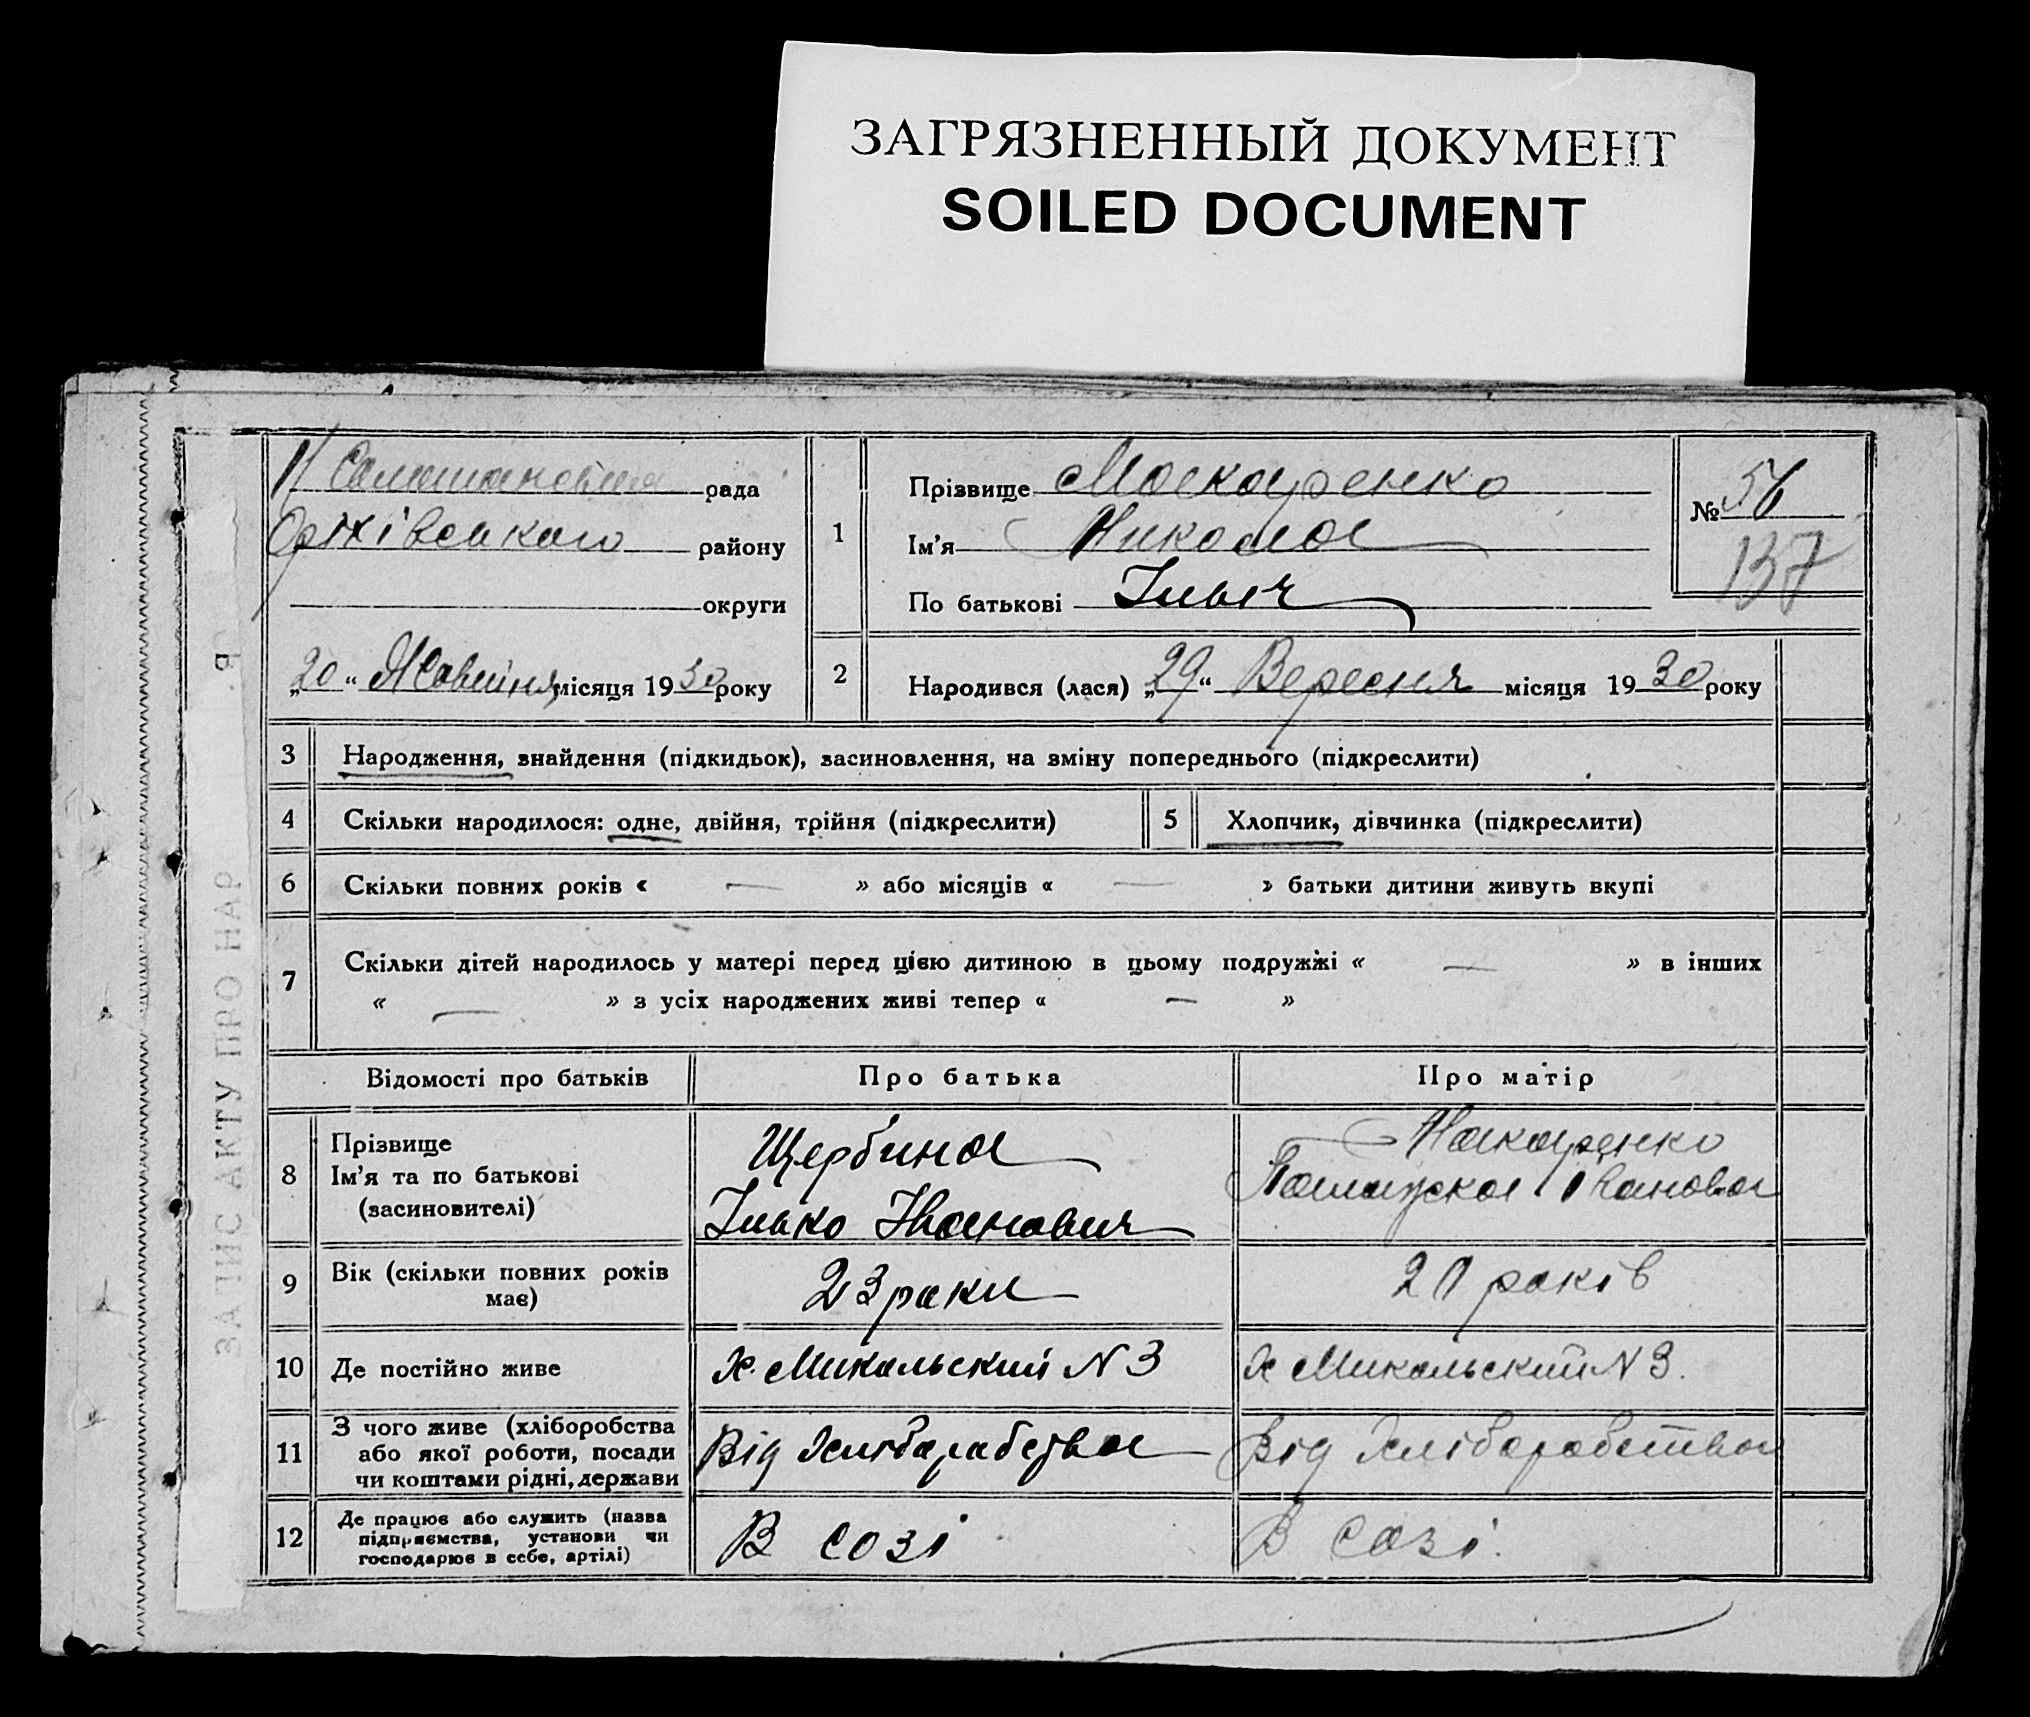 ЗАГРЯЗНЕННЫЙ ДОКУМЕНТ
SOILED DOCUMENT
рада
району
округи
„20“ Жовтня місяця 1930 року
1
Прізвище Макаренко
Ім'я Микола
По батькові Ільіч
№ 56
137
2
Народився (лася) „29“ Вересня місяця 1930 року
3 Народження, знайдення (підкидьок), засиновлення, на зміну попереднього (підкреслити)
4 Скільки народилося: одне, двійня, трійня (підкреслити)
5 Хлопчик, дівчинка (підкреслити)
6 Скільки повних років « — » або місяців « — » батьки дитини живуть вкупі
7 Скільки дітей народилось у матері перед цією дитиною в цьому подружжі « — » в інших
« — » з усіх народжених живі тепер « — »
Відомості про батьків
Про батька
Про матір
8 Прізвище
Ім'я та по батькові
(засиновителі)
Щербина
Ілько Іванович
Макаренко
Івановна
9 Вік (скільки повних років
має)
23 роки
20 років
10 Де постійно живе
Х. Микольский N 3
Х Микольский N 3.
11 З чого живе (хліборобства
або якої роботи, посади
чи коштами рідні, держави
Від Хліборобства
Від Хліборобства
12 Де працює або служить (назва
підприємства, установи чи
господарює в себе, артілі)
В созі
В созі.
ЗАПИС АКТУ ПРО НАР